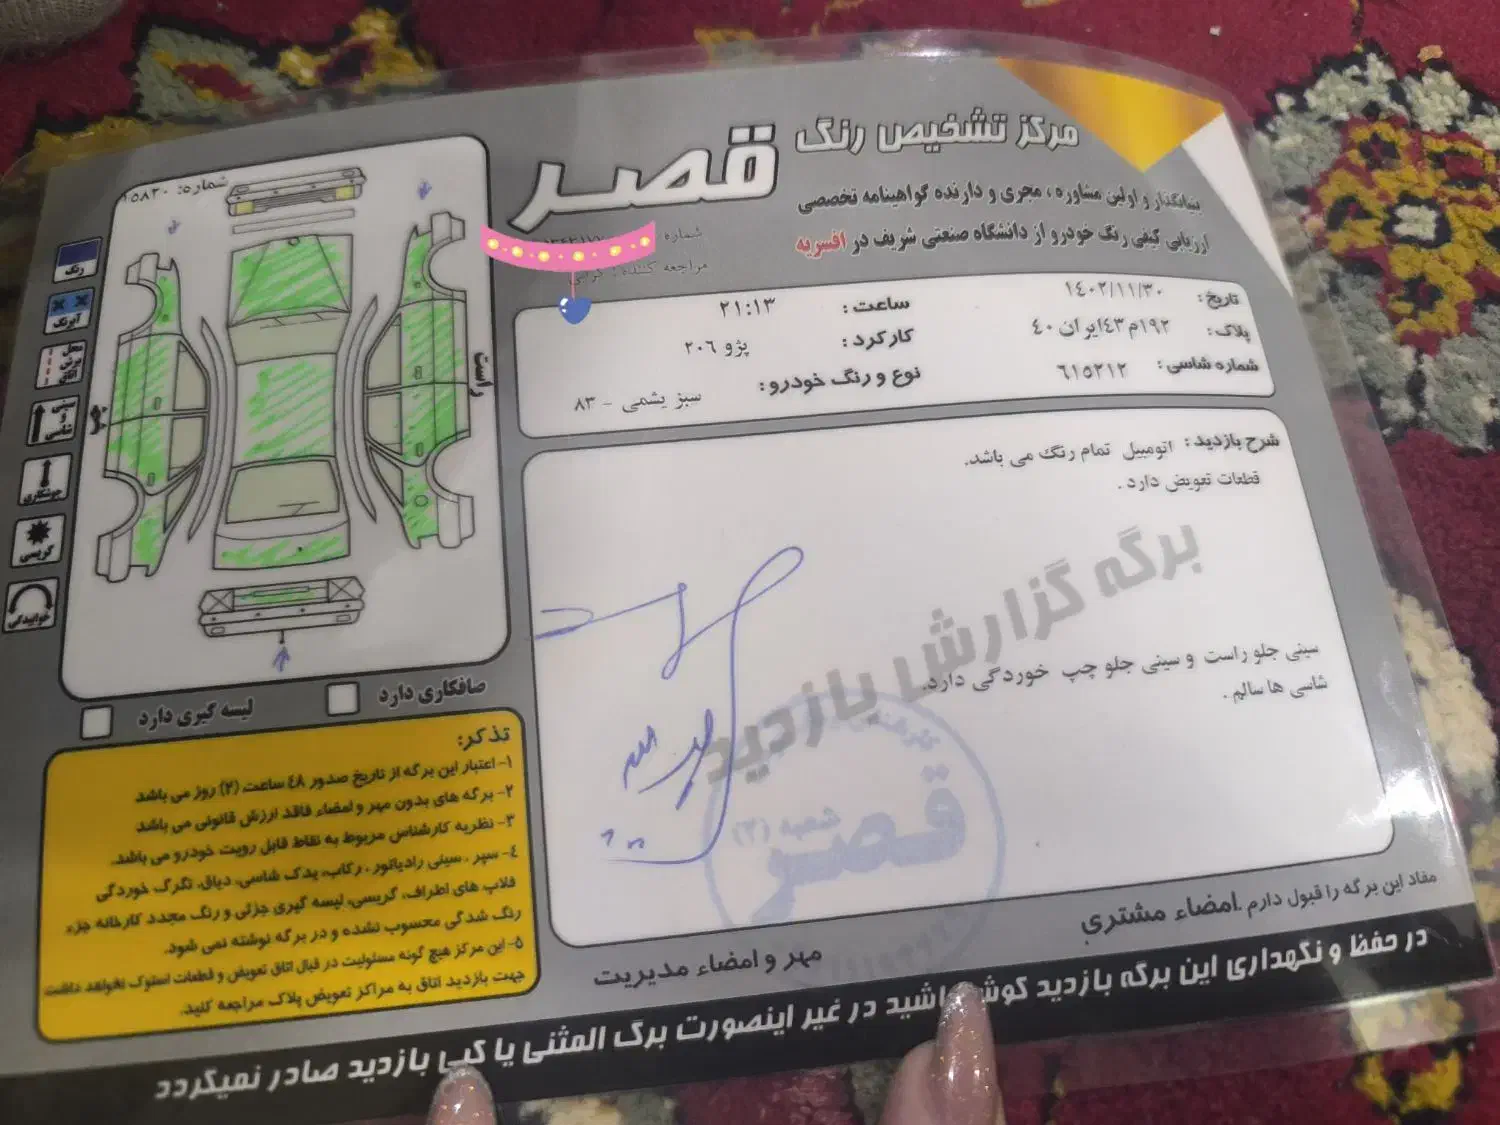 مرکز تشخیص رنگ
قصر
بنیانگذار و اولین مشاوره ، مجری و دارنده گواهینامه تخصصی
ارزیابی کیفی رنگ خودرو از دانشگاه صنعتی شریف در افسریه
شماره
مراجعه کننده :
تاریخ: ۱۴۰۲/۱۱/۳۰
ساعت : ۲۱:۱۳
پلاک: ۱۹۲م۴۳ایران ۴۰
کارکرد : پژو ۲۰۶
شماره شاسی : ۶۱۵۲۱۲
نوع و رنگ خودرو : سبز یشمی - ۸۳
شرح بازدید : اتومبیل تمام رنگ می باشد.
قطعات تعویض دارد .
برگه گزارش بازدید
سینی جلو راست و سینی جلو چپ خوردگی دارد.
شاسی ها سالم .
قصر
شعبه (۲)
مفاد این برگه را قبول دارم .امضاء مشتری
مهر و امضاء مدیریت
شماره: ۱۰۵۸۳۰
راست
چپ
رنگ
آبرنگ
محل برش اتاق
سینی و شاسی
جوشکاری
گریسی
خوابیدگی
صافکاری دارد
لیسه گیری دارد
تذکر:
۱- اعتبار این برگه از تاریخ صدور ۴۸ ساعت (۲) روز می باشد
۲- برگه های بدون مهر و امضاء فاقد ارزش قانونی می باشد
۳- نظریه کارشناس مربوط به نقاط قابل رویت خودرو می باشد.
۴- سپر ، سینی رادیاتور ، رکاب، یدک شاسی، دیاق، تگرگ خوردگی
قلاب های اطراف، گریسی، لیسه گیری جزئی و رنگ مجدد کارخانه جزء
رنگ شدگی محسوب نشده و در برگه نوشته نمی شود.
۵- این مرکز هیچ گونه مسئولیت در قبال اتاق تعویض و قطعات استوک نخواهد داشت
جهت بازدید اتاق به مراکز تعویض پلاک مراجعه کنید.
در حفظ و نگهداری این برگه بازدید کوشا باشید در غیر اینصورت برگ المثنی یا کپی بازدید صادر نمیگردد